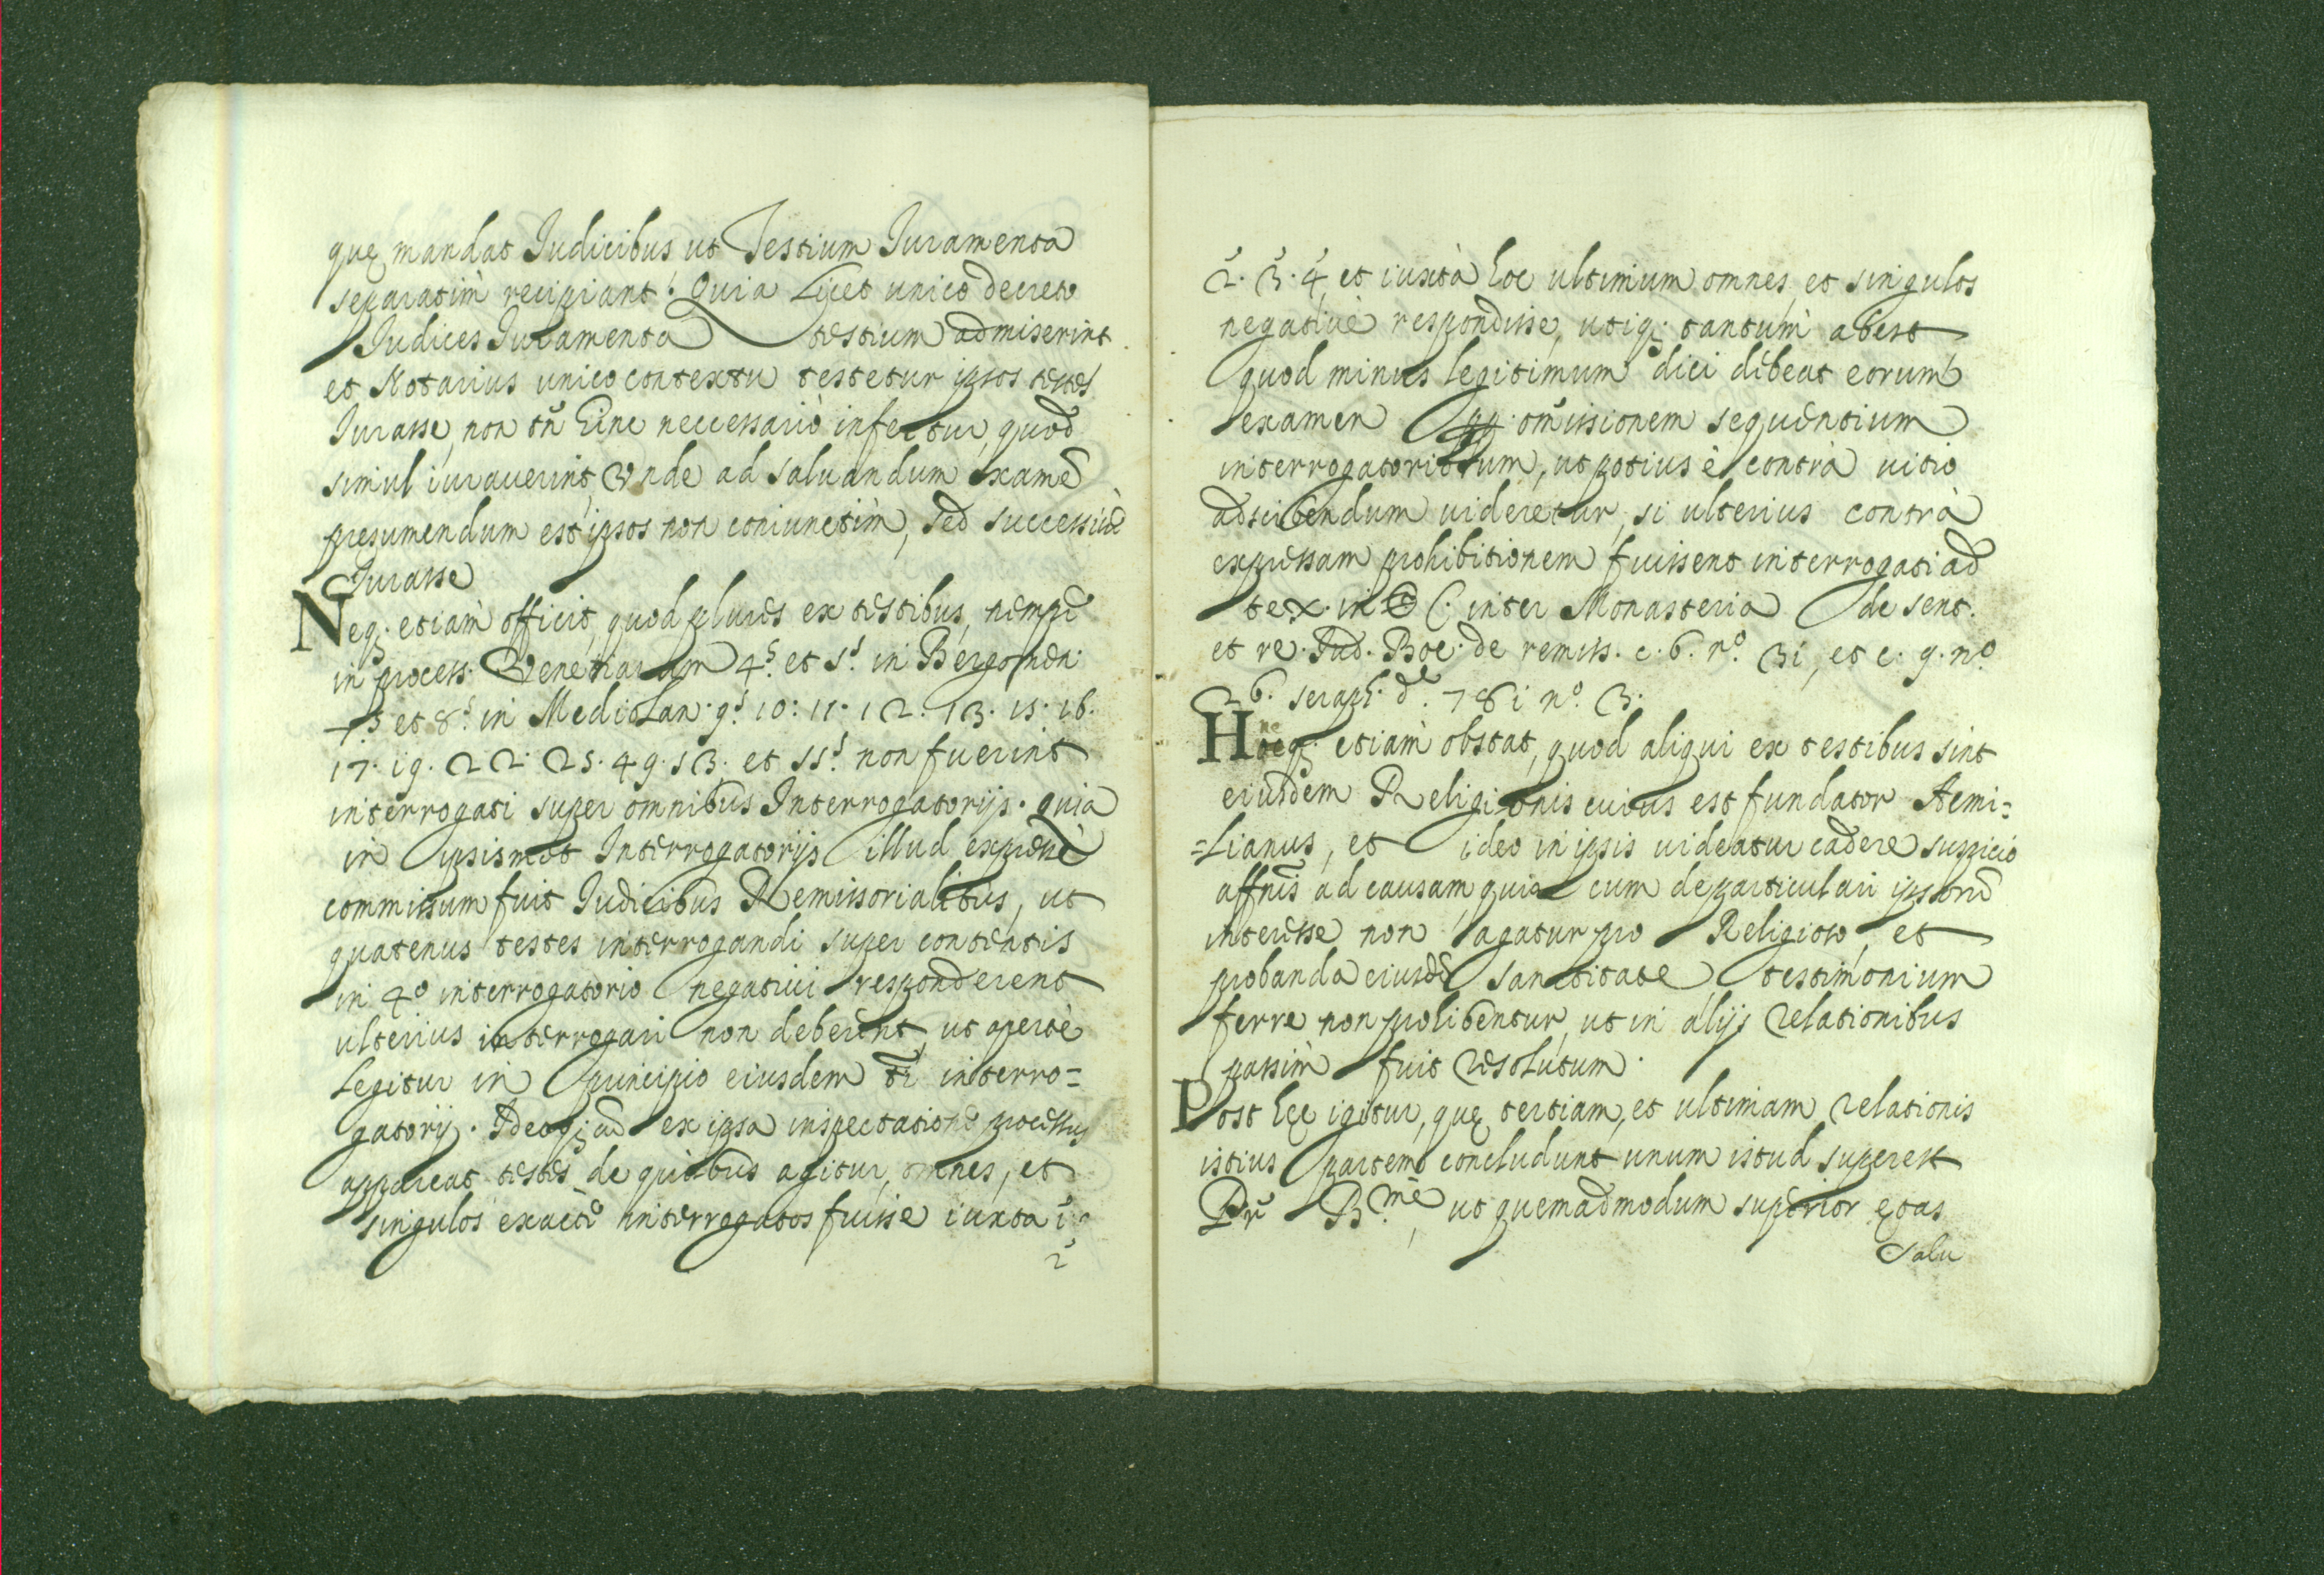 quę mandat Iudicibus, ut Testium Iuramenta
separatim recipiant. Quia Licet unico decreto
Iudices Iuramenta testium admiserint
et Notarius unico contextu testetur ipsos testes
Iurasse, non tñ hinc neccessariò infertur, quod
simul iurauerint, Vnde ad saluandum examē
presumendum est ipsos non coniunctim, sed successiuè
Iurasse
Neq; etiam officit, quod plures ex testibus, nempè
in process. Venetiarum 4.s et 5.s in Bergomen.
7.s et 8.s in Mediolan. 9.s 10: 11. 12. 13. 15. 16.
17. 19. 22. 25. 49. 53. et 55.s non fuerint
interrogati super omnibus Interrogatorijs. quia
in ipsismet Interrogatorijs illud expressè
commissum fuit Iudicibus Remissorialibus, ut
quatenus testes interrogandi super contentis
in 4.o interrogatorio negatiui responderent
ulterius interrogari non deberent, ut apertè
Legitur in principio eiusdem interro=
gatorij. Ideoq; ex ipsa inspectatione processus
appareat testes de quibus agitur, omnes, et
singulos exactè interrogatos fuisse iuxta i.
2
2. 3. 4, et iuxtà hoc ultimum omnes, et singulos
negatiuè respondisse, utiq; tantum abest
quod minus legitimum dici debeat eorum
examen pp. omissionem sequentium
interrogatoriorum, ut potius è contrà uitio
adscribendum uideretur, si ulterius contrà
expressam prohibitionem fuissent interrogati ad
tex. in C. inter Monasteria de sent.
et re. Iud. Boe. de remiss. c. 6. n.o 31, et c. 9. n.o
26. seraph. d. 781 n.o 3.
Hocq; etiam obstat, quod aliqui ex testibus sint
eiusdem Religionis cuius est fundator Aemi=
=Lianus, et ideo in ipsis uideatur cadere suspicio
affnis ad causam, quia cum de particulari ipsorū
interesse non agatur pro Religioso, et
probanda eiusdē sanctitate testimonium
ferre non prohibentur, ut in alijs relationibus
passim fuit resolutum.
Post hęc igitur, quę tertiam, et ultimam relationis
istius partem concludunt unum istud superest
Pr B.me, ut quemadmodum superior ętas
salu